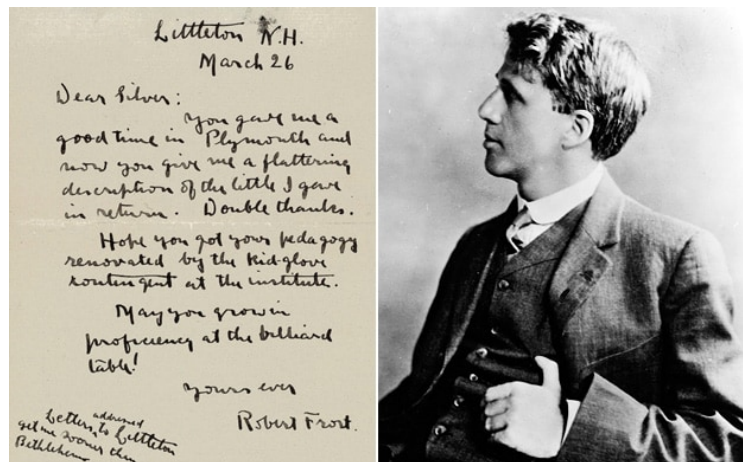 Littleton N.H.
March 26
Dear Silver:
You gave me a
good time in Plymouth and
now you give me a flattering
description of the little I gave
in return. Double thanks.
Hope you got yours pedagogy
renovated by the kid-glove
contingent at the institute.
May you grow in
proficiency at the billiard
table!
Yours ever
Robert Frost.
Letters addressed
to Littleton
get me sooner than
Bethlehem